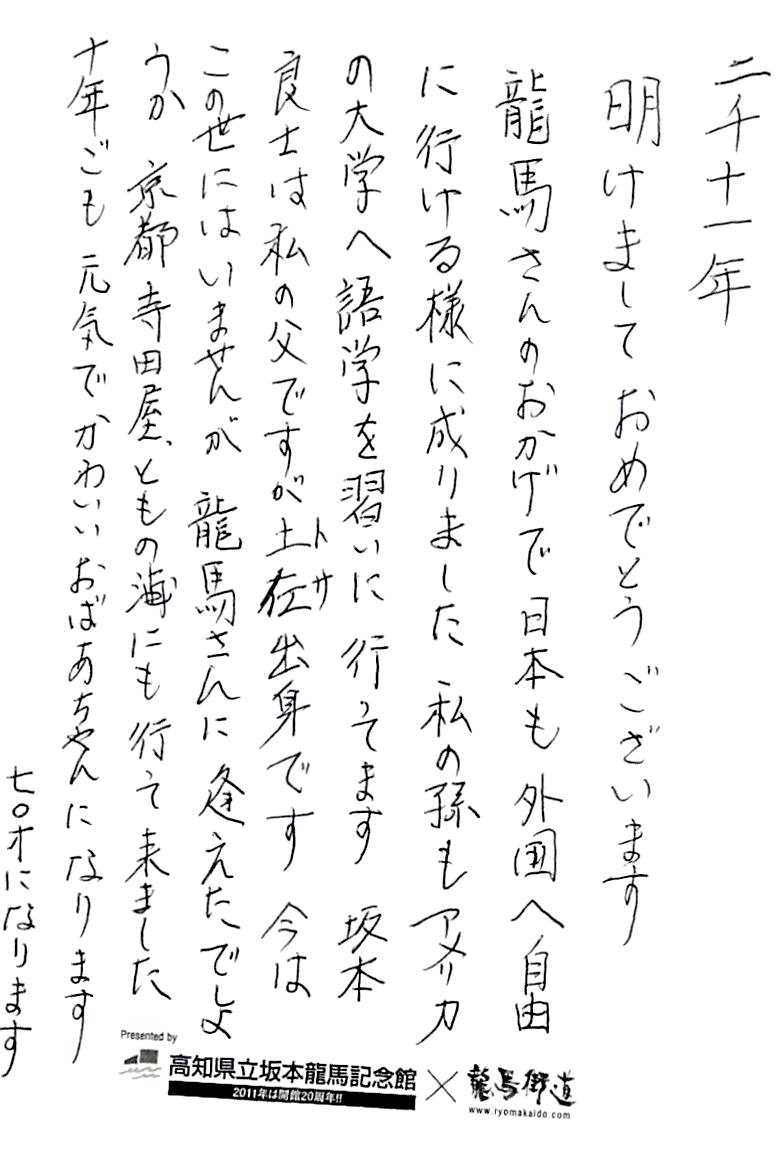 二千十一年
明けまして おめでとうございます
龍馬さんのおかげで日本も外国へ自由
に行ける様に成りました 私の孫もアメリカ
の大学へ語学を習いに行ってます 坂本
良士は私の父ですが土在出身です 今は
トサ
この世にはいませんが 龍馬さんに逢えたでしょ
うか 京都寺田屋、ともの浦にも行って来ました
十年ごも元気でかわいいおばあちゃんになります
七〇才になります
Presented by
高知県立坂本龍馬記念館×龍馬街道
2011年は開館20周年!!
www.ryomakaido.com